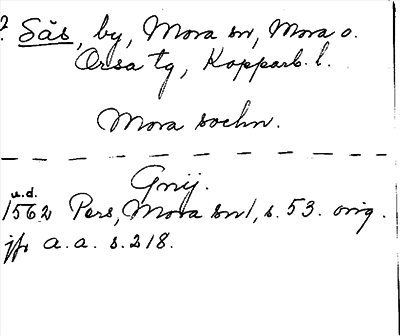 ? Sås, by, Mora sn, Mora o.
Orsa tg, Kopparb. l.
Mora sockn.
Gnij.
u.d.
1562 Pers, Mora sn 1, s. 53. orig.
jfr a.a. s. 218.